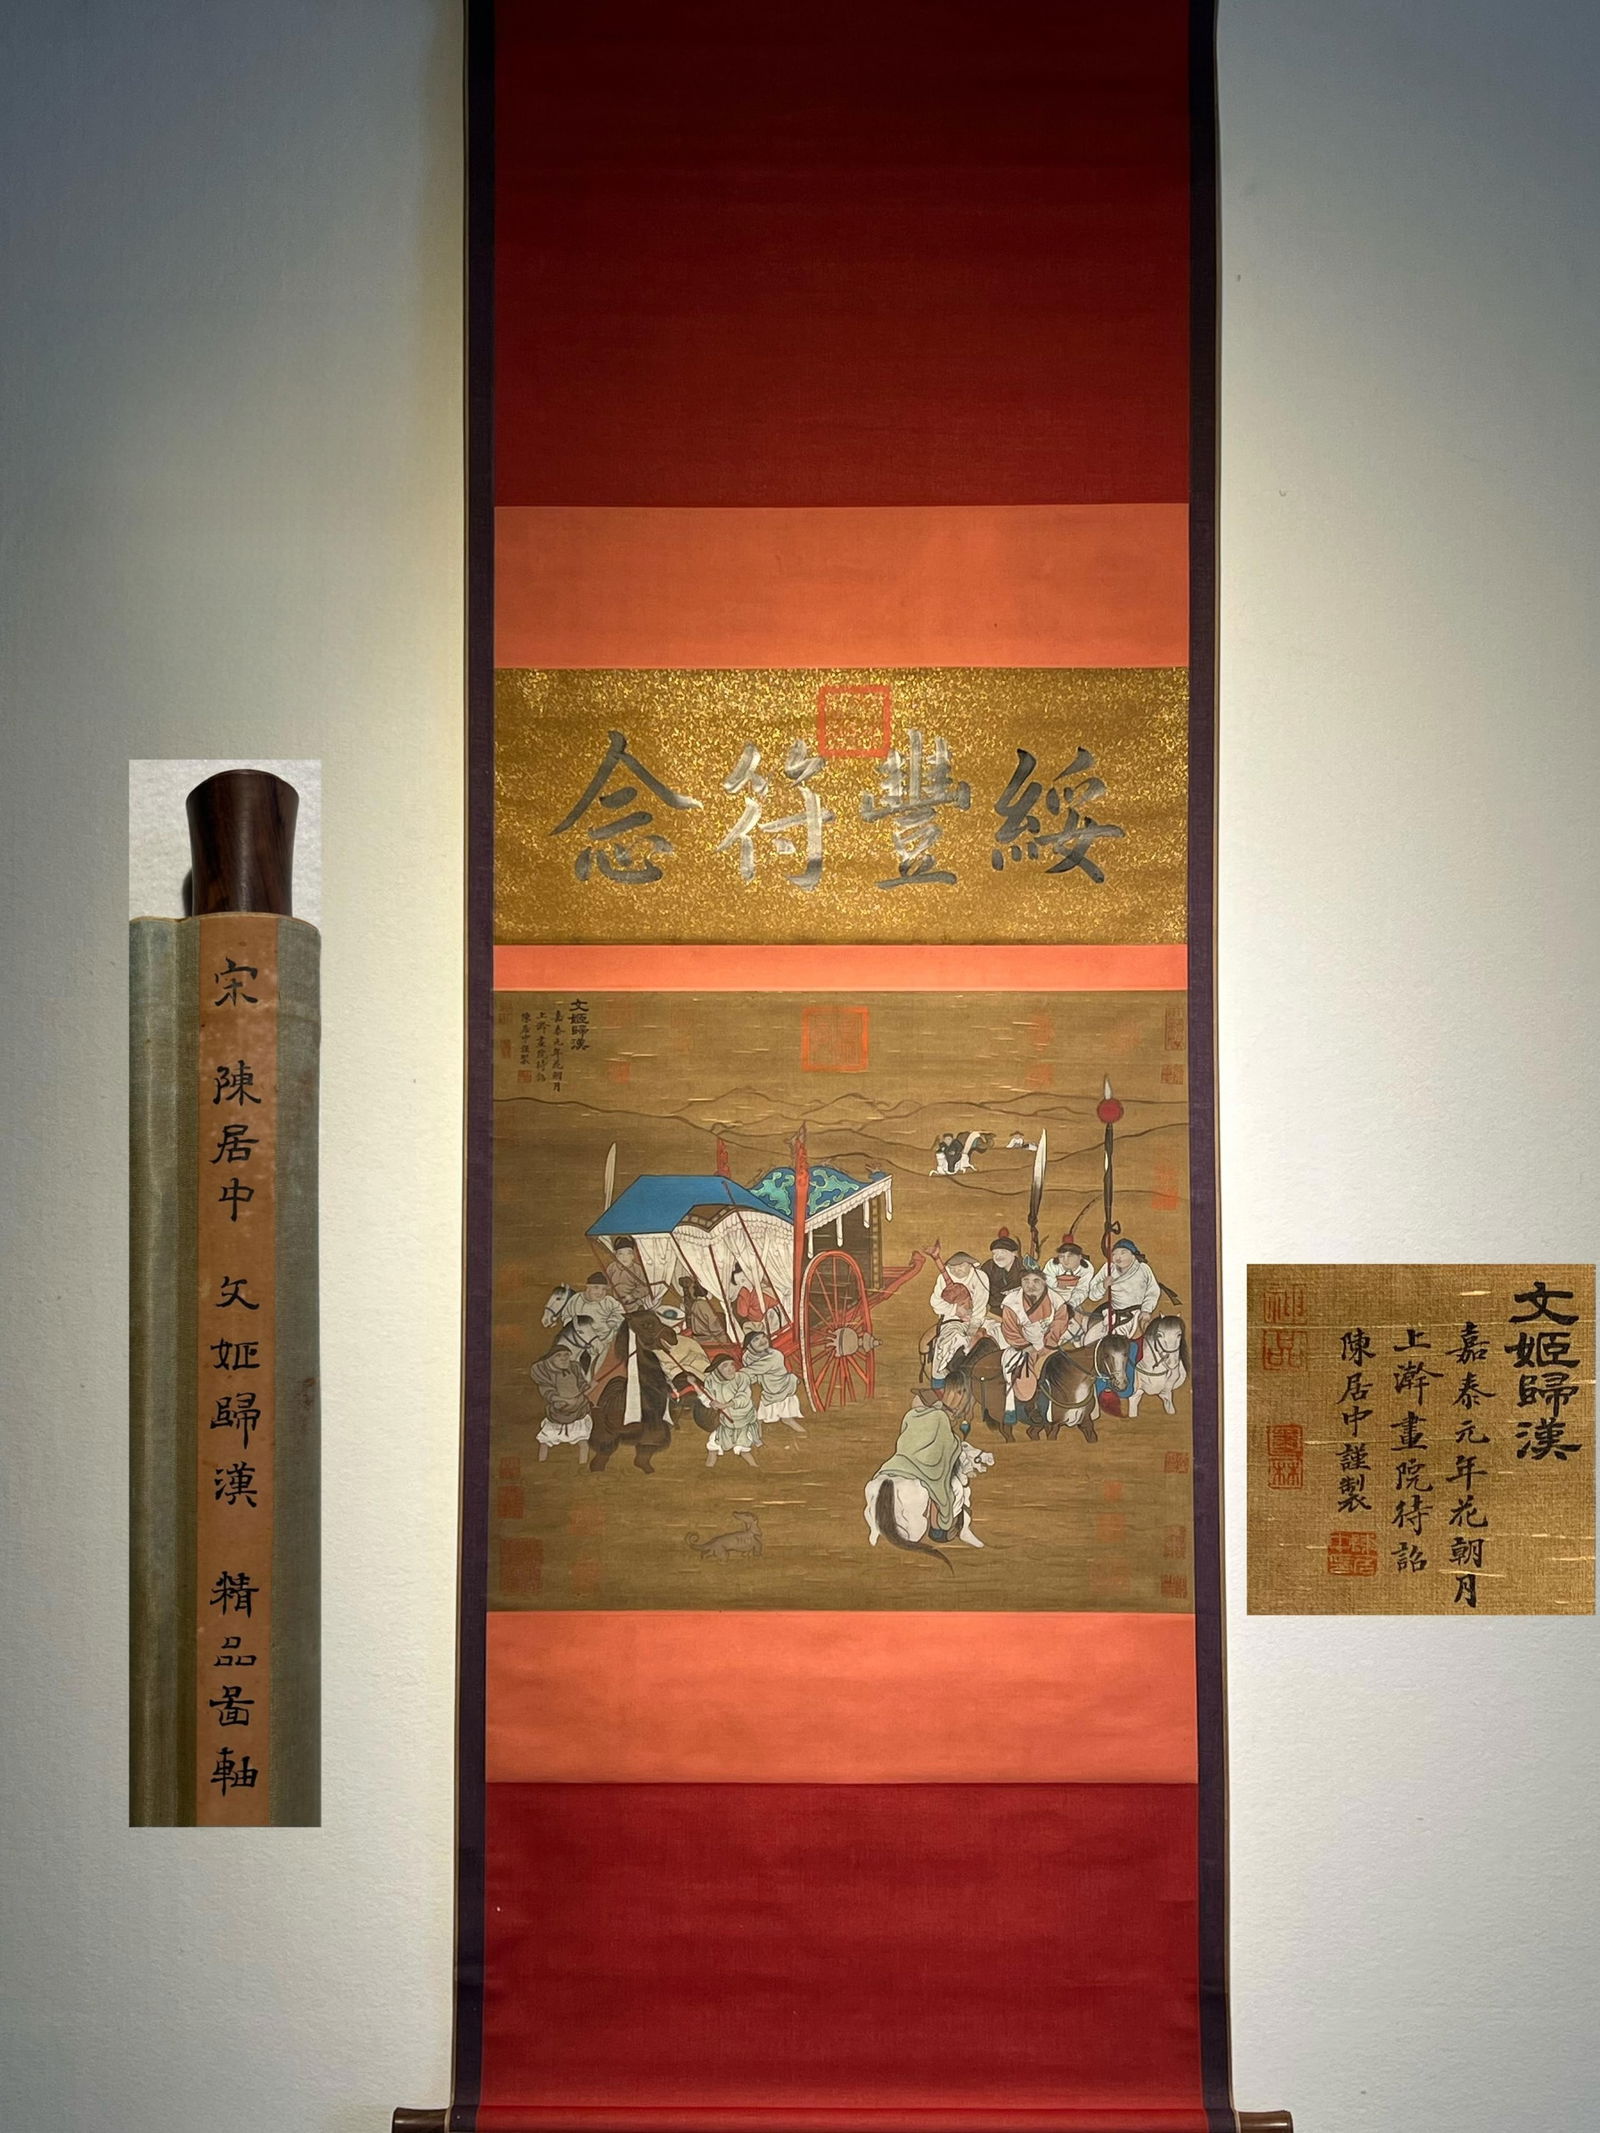 綏豐符念
文姬歸漢
嘉泰元年花朝月
上澣畫院待詔
陳居中謹製
宋 陳居中 文姬歸漢 精品圖軸
文姬歸漢
嘉泰元年花朝月
上澣畫院待詔
陳居中謹製
神品